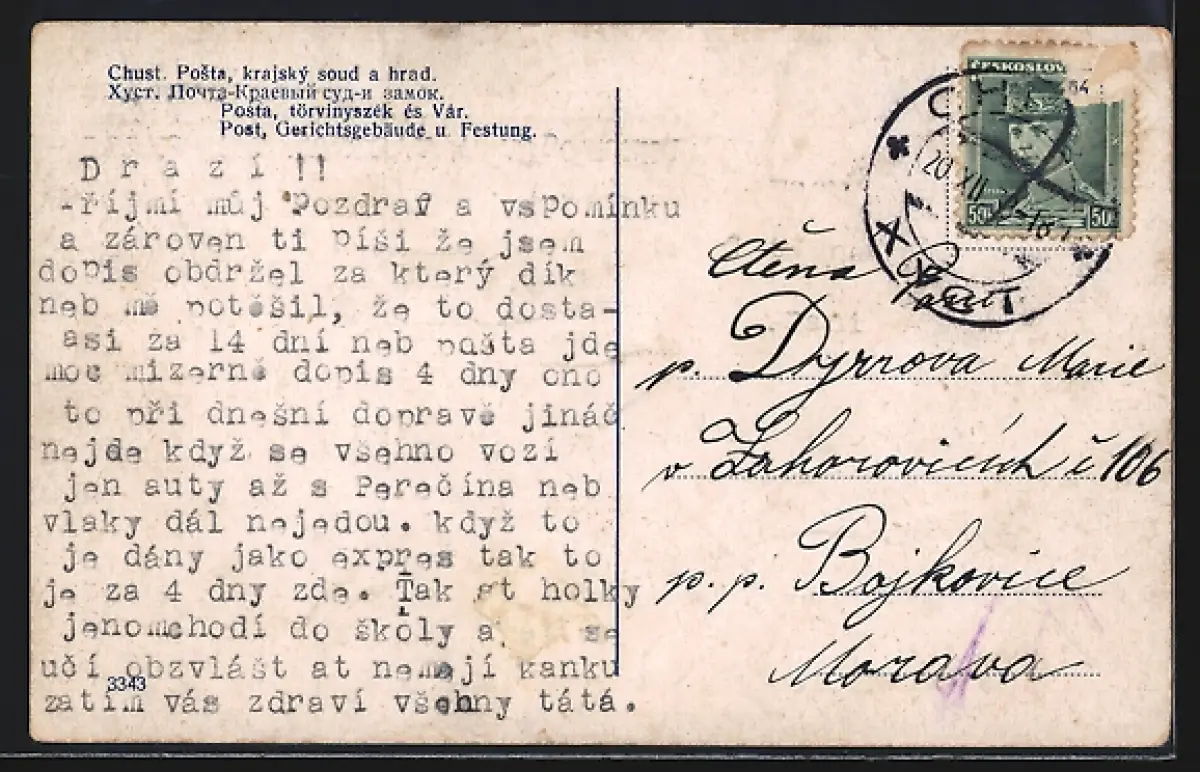 Chust. Pošta, krajský soud a hrad.
Хуст. Почта-Краевый суд-и замок.
Posta, törvinyszék és Vár.
Post, Gerichtsgebäude u. Festung.
Drazí!!
-říjmi můj Pozdraf a vsPomínku
a zároven ti píši že jsem
dopis obdržel za který dík
neb mě potěšil, že to dosta-
asi za 14 dní neb pašta jde
moc mizerně dopis 4 dny ono
to při dnešní dopravě jináč
nejde když se všehno vozí
jen auty až s Perečína neb
vlaky dál nejedou. když to
je dány jako expres tak to
je za 4 dny zde. Tak at holky
jenomchodí do školy a se
učí obzvlášt at nemají kanku
zatím vás zdraví všechny tátá.
3343
ČESKOSLOV
50 50
20.XII
ХУСТ
Ctěná Paní
p. Dyrrova Marie
v Záhorovicích č 106
p. p. Bojkovice
Morava